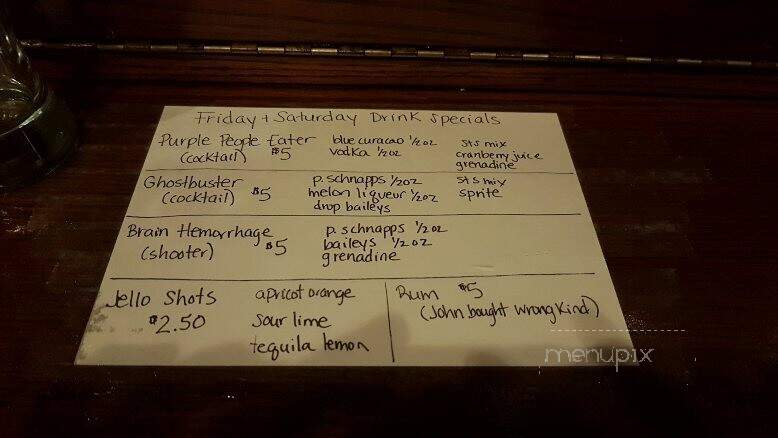 Friday + Saturday Drink Specials
Purple People Eater blue curacao 1/2 oz sts mix
(cocktail) $5 vodka 1/2 oz cranberry juice
grenadine
Ghostbuster p. schnapps 1/2 oz sts mix
(cocktail) $5 melon liqueur 1/2 oz sprite
drop baileys
Brain Hemorrhage p. schnapps 1/2 oz
(shooter) $5 baileys 1/2 oz
grenadine
Jello Shots apricot orange
$2.50 sour lime
tequila lemon
Rum $5
(John bought wrong kind)
menupix